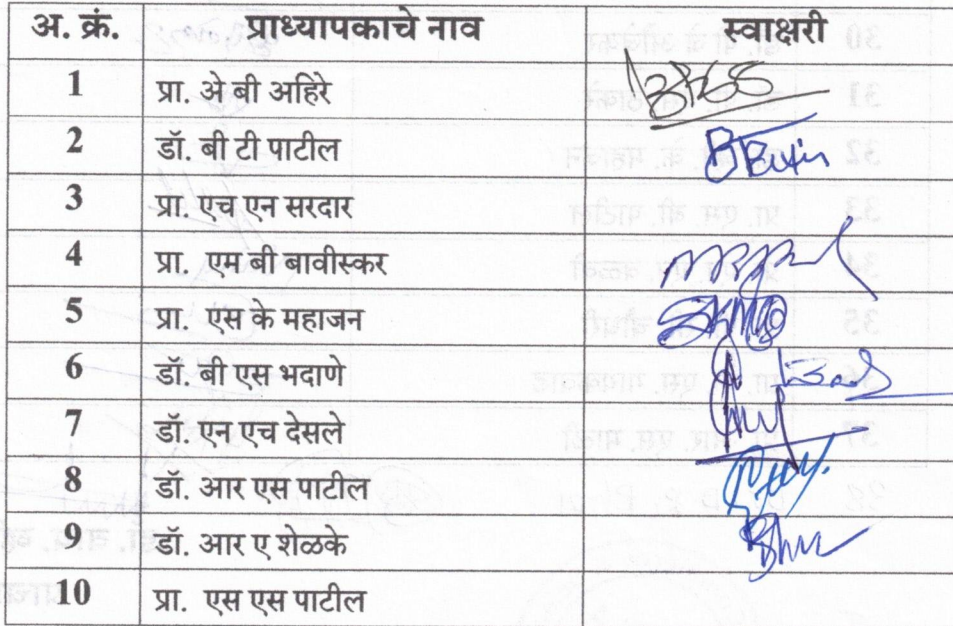 अ. क्रं. प्राध्यापकाचे नाव स्वाक्षरी
1 प्रा. अे बी अहिरे
2 डॉ. बी टी पाटील
3 प्रा. एच एन सरदार
4 प्रा. एम बी बावीस्कर
5 प्रा. एस के महाजन
6 डॉ. बी एस भदाणे
7 डॉ. एन एच देसले
8 डॉ. आर एस पाटील
9 डॉ. आर ए शेळके
10 प्रा. एस एस पाटील